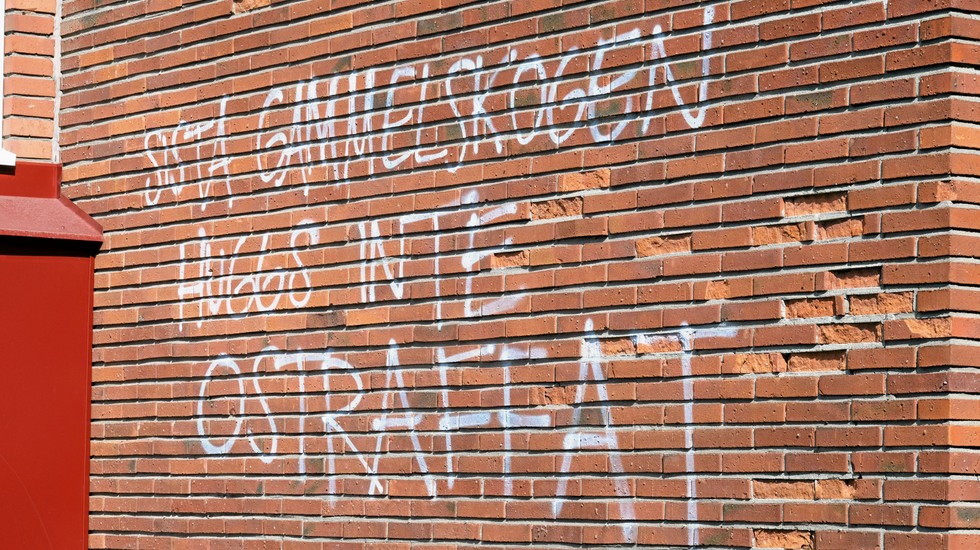 SISTA GAMMELSKOGEN!
HUGGS INTE
OSTRAFFAT